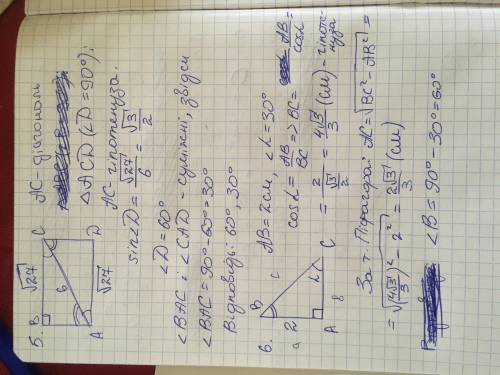 5. B √27 C
6
A √27 D
AC - діагональ
△ACD (∠D = 90°);
AC - гіпотенуза.
sin∠D = √27/6 = √3/2
∠D = 60°
∠BAC і ∠CAD - суміжні, звідси
∠BAC = 90° - 60° = 30°
Відповідь: 60°, 30°
6. B c
2 a
A 8 C
AB = 2см, ∠L = 30°
cos L = AB/BC => BC = AB/cosL =
= 2/(√3/2) = 4√3/3 (см) - гіпотенуза
За т. Піфагора: AC = √(BC² - AB²) =
= √((4√3/3)² - 2²) = 2√3/3 (см)
∠B = 90° - 30° = 60°